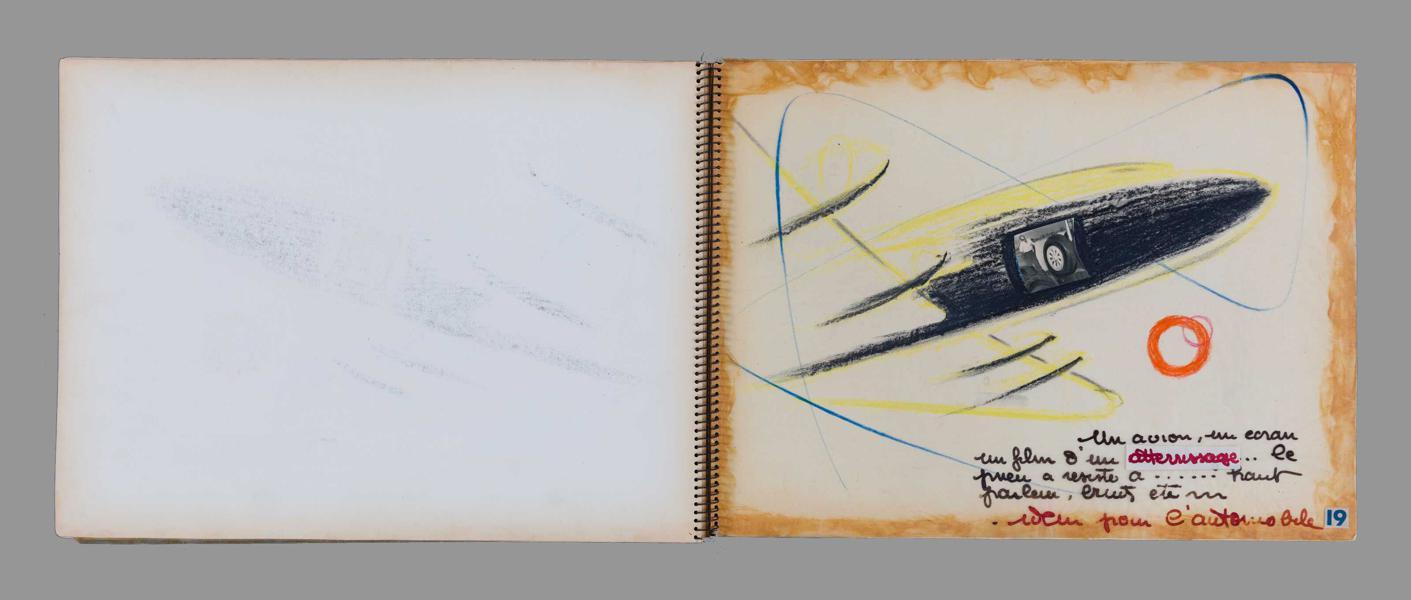 Un avion, un ecran
un film d'un atterrissage... le
pneu a resiste a ...... haut
parleur, bruit, etc
. idem pour l'automobile 19